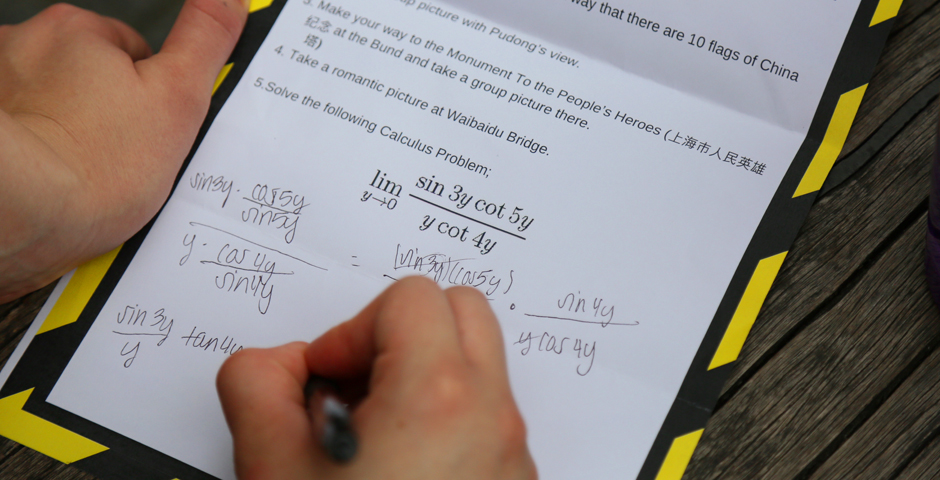 way that there are 10 flags of China
up picture with Pudong's view.
3. Make your way to the Monument To the People's Heroes (上海市人民英雄
纪念 at the Bund and take a group picture there.
塔)
4. Take a romantic picture at Waibaidu Bridge.
5.Solve the following Calculus Problem;
lim y→0 sin 3y cot 5y
y cot 4y
sin3y · cos5y
sin5y
y · cos 4y
sin4y
= (sin3y)(cos5y) · sin 4y
y cos 4y
sin 3y tan4y
y